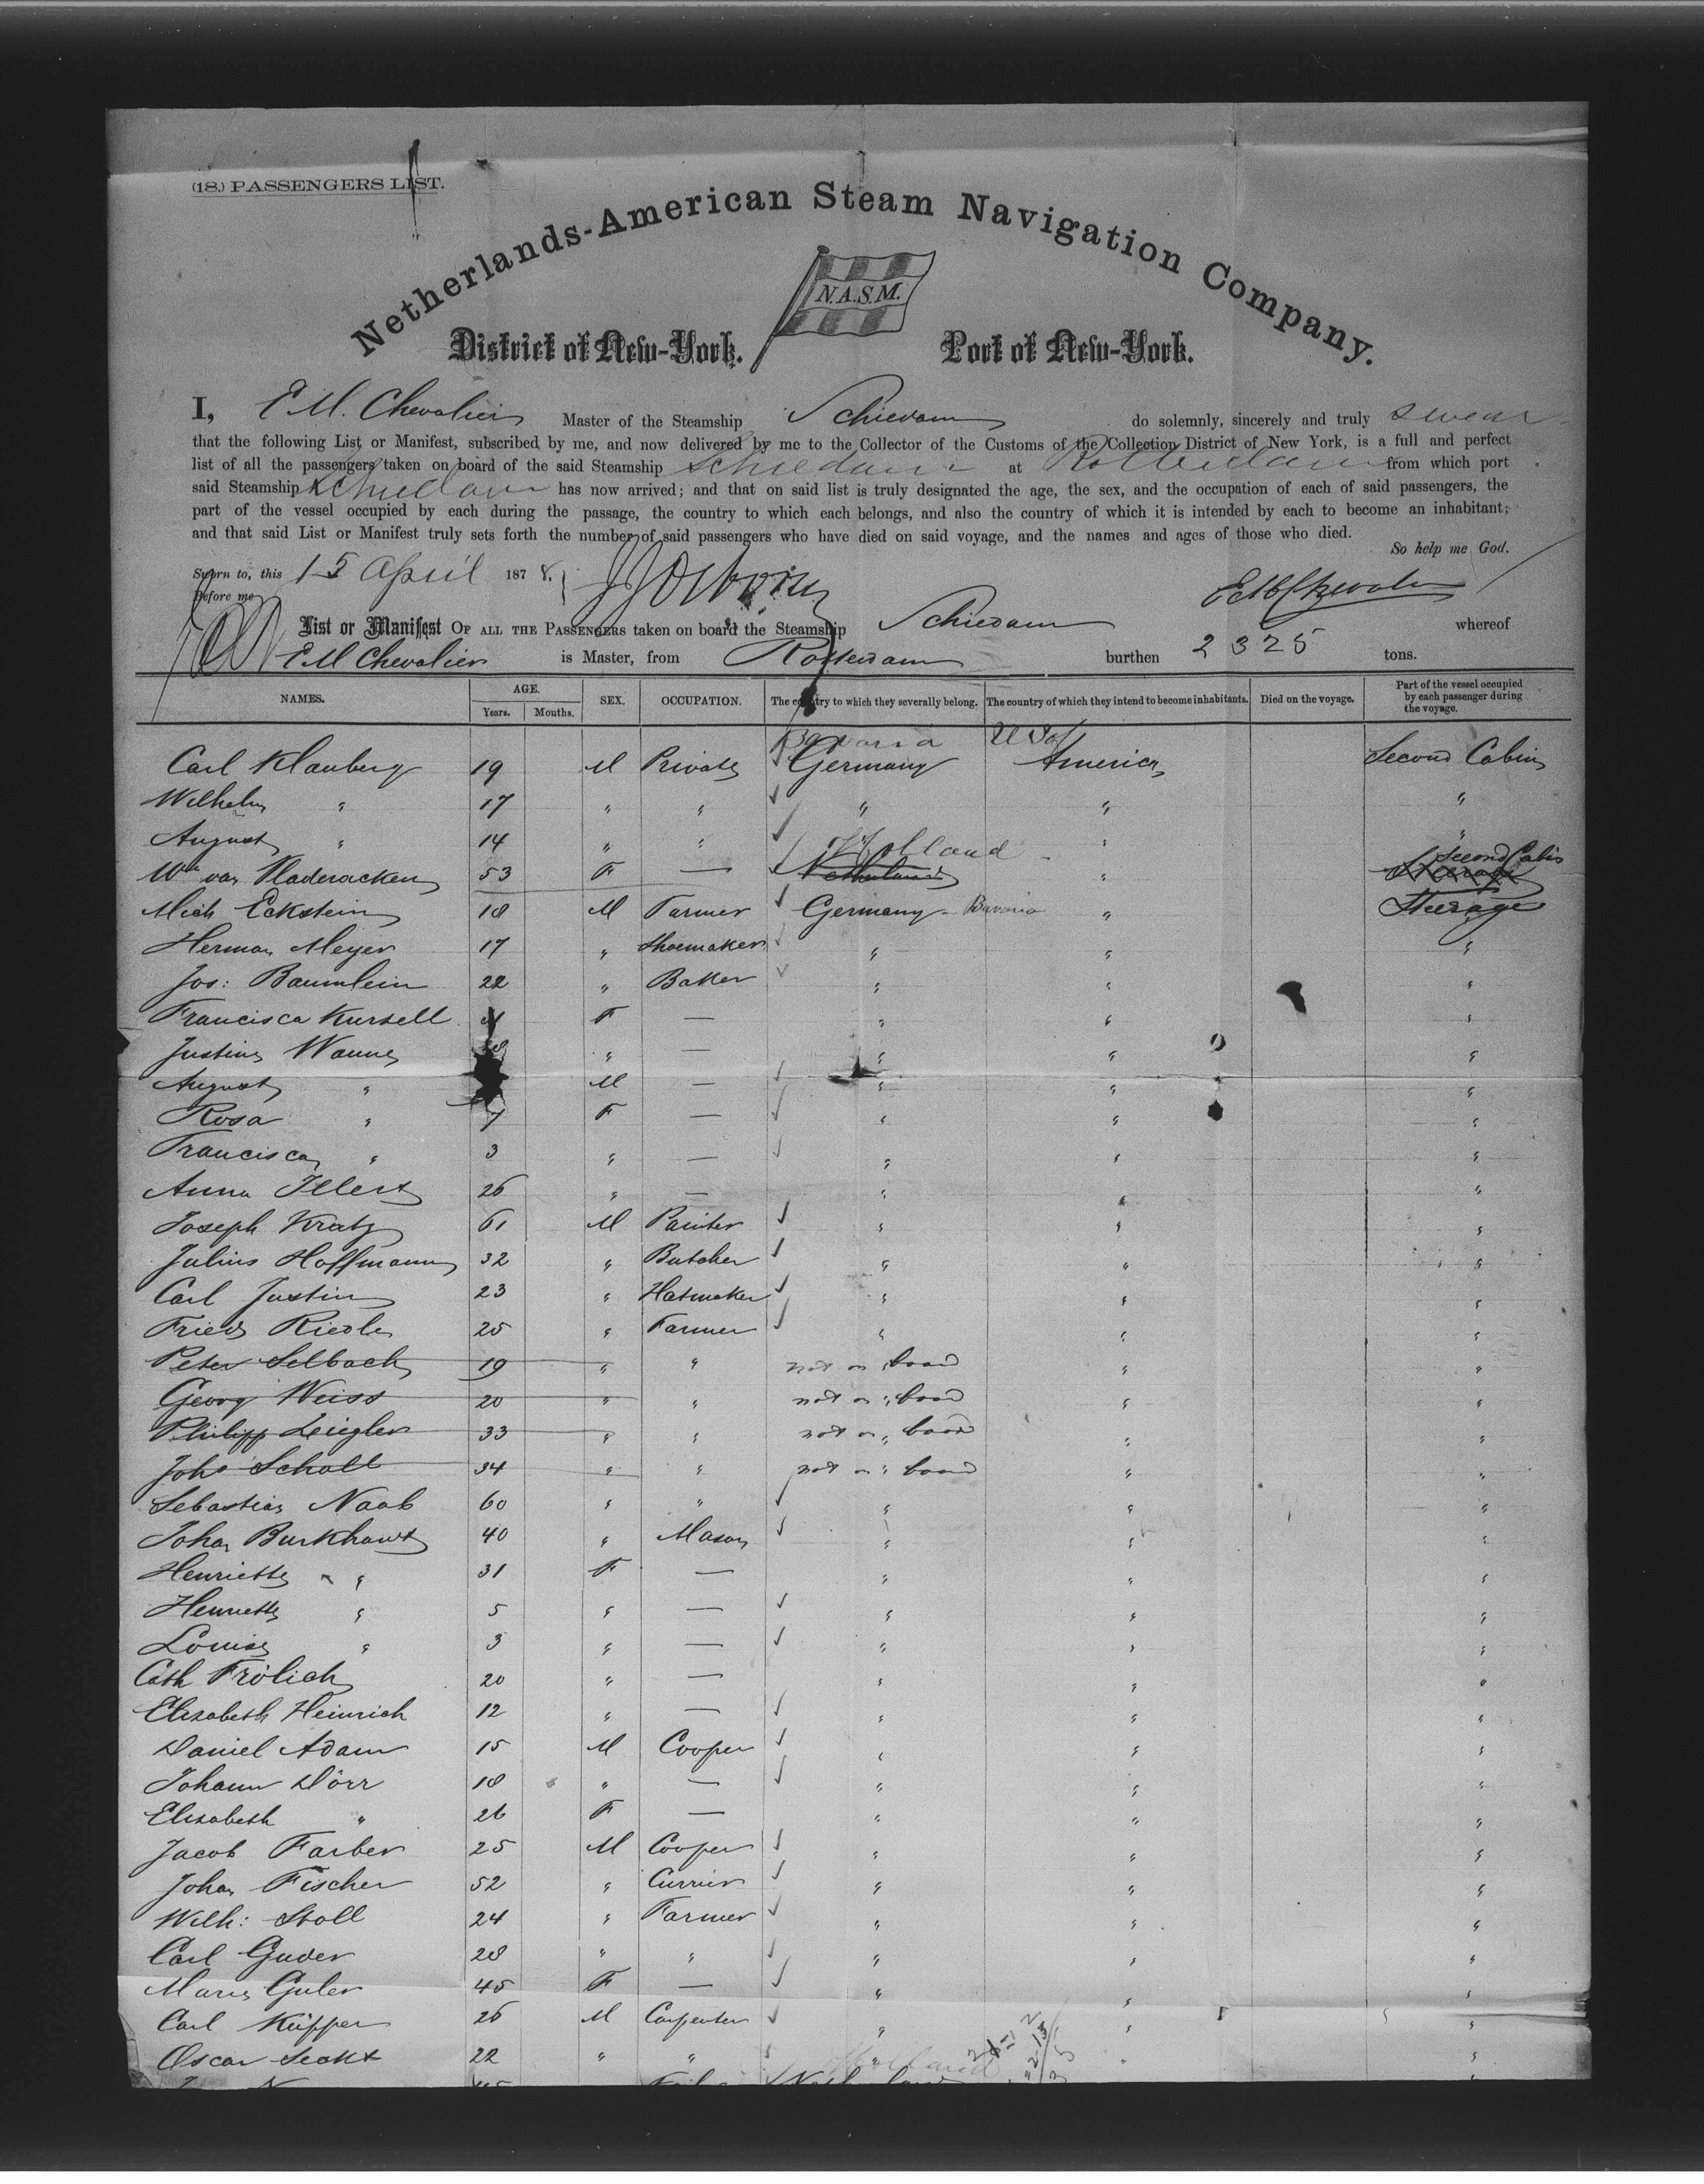 (18.) PASSENGERS LIST.
Netherlands-American Steam Navigation Company.
N.A.S.M.
District of New-York. Port of New-York.
I, E M. Chevalier Master of the Steamship Schiedam do solemnly, sincerely and truly swear
that the following List or Manifest, subscribed by me, and now delivered by me to the Collector of the Customs of the Collection District of New York, is a full and perfect
list of all the passengers taken on board of the said Steamship Schiedam at Rotterdam from which port
said Steamship Schiedam has now arrived; and that on said list is truly designated the age, the sex, and the occupation of each of said passengers, the
part of the vessel occupied by each during the passage, the country to which each belongs, and also the country of which it is intended by each to become an inhabitant;
and that said List or Manifest truly sets forth the number of said passengers who have died on said voyage, and the names and ages of those who died.
So help me God.
Sworn to, this 15 April 1878.
Before me
E M Chevalier
List or Manifest OF ALL THE PASSENGERS taken on board the Steamship Schiedam whereof
E M Chevalier is Master, from Rotterdam burthen 2325 tons.
NAMES. AGE. Years. Months. SEX. OCCUPATION. The country to which they severally belong. The country of which they intend to become inhabitants. Died on the voyage. Part of the vessel occupied by each passenger during the voyage.
Bavaria U S of
Carl Klauberg 19 M Private Germany America Second Cabin
Wilhelm " 17 " " " " "
August " 14 " " " "
Holland Second Cabin
Wm van Vladeracken 53 F — Netherlands " Steerage
Mich Eckstein 18 M Farmer Germany - Bavaria " Steerage
Herman Meyer 17 " Shoemaker " " "
Jos: Baumlein 22 " Baker " " "
Francisca Kursell F — " " "
Justine Wanne " — " " "
August " M — " " "
Rosa " 7 F — " " "
Francisca " 3 " — " " "
Anna Illert 26 " — " " "
Joseph Kratz 61 M Painter " " "
Julius Hoffmann 32 " Butcher " " "
Carl Justin 23 " Hatmaker " " "
Fried Riedle 25 " Farmer " " "
Peter Selbach 19 " " not on board " "
Georg Weiss 20 " " not on board " "
Philipp Zeigler 33 " " not on board " "
Joh Scholl 34 " " not on board " "
Sebastian Naab 60 " " " " "
Johan Burkhardt 40 " Mason " " "
Henriette " 31 F — " " "
Henriette " 5 " — " " "
Louise " 3 " — " " "
Cath Frölich 20 " — " " "
Elisabeth Heinrich 12 " — " " "
Daniel Adam 15 M Cooper " " "
Johann Dörr 18 " — " " "
Elisabeth " 26 F — " " "
Jacob Farber 25 M Cooper " " "
Johan Fischer 52 " Currier " " "
Wilh: Stoll 24 " Farmer " " "
Carl Guder 28 " " " " "
Marie Guler 45 F — " " "
Carl Küpper 26 M Carpenter " " "
Oscar Seckt 22 " " " " "
Holland